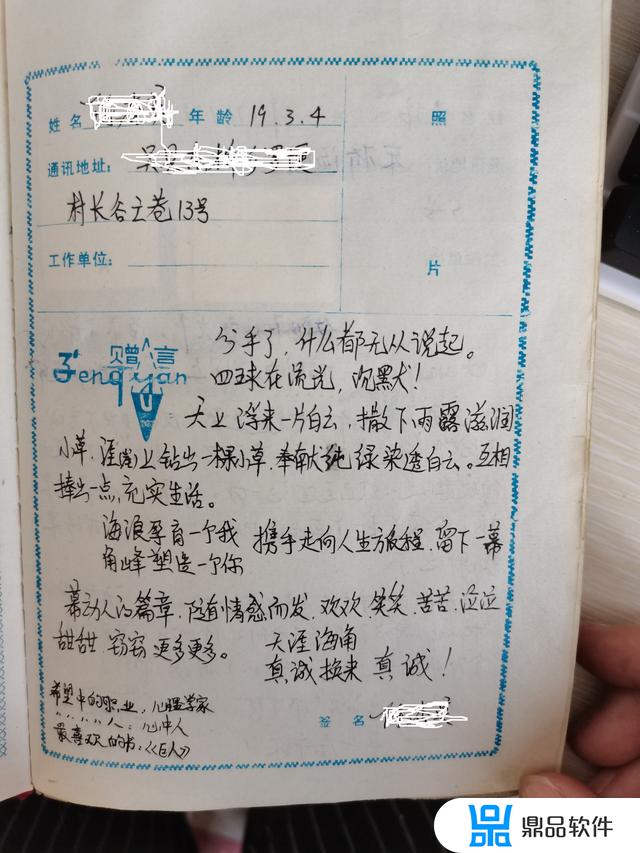 姓名 年龄 19.3.4 照
通讯地址:
村长谷土巷13号
工作单位: 片
赠言
Zeng yan
分手了,什么都无从说起。
在流光,沉默!
天上浮来一片白云,撒下雨露滋润
小草.上钻出一棵小草.奉献纯绿染透白云。互相
捧出一点,充实生活。
海浪孕育一个我
角峰塑造一个你
携手走向人生旅程.留下一幕
幕动人的篇章.随着情感而发.欢欢.笑笑.苦苦.泣泣
甜甜.窃窃更多更多。
天涯海角
真诚换来真诚!
希望中的职业,心理学家
〃〃〃〃人:心中人
最喜欢的书:《巨人》
签名
鼎品软件